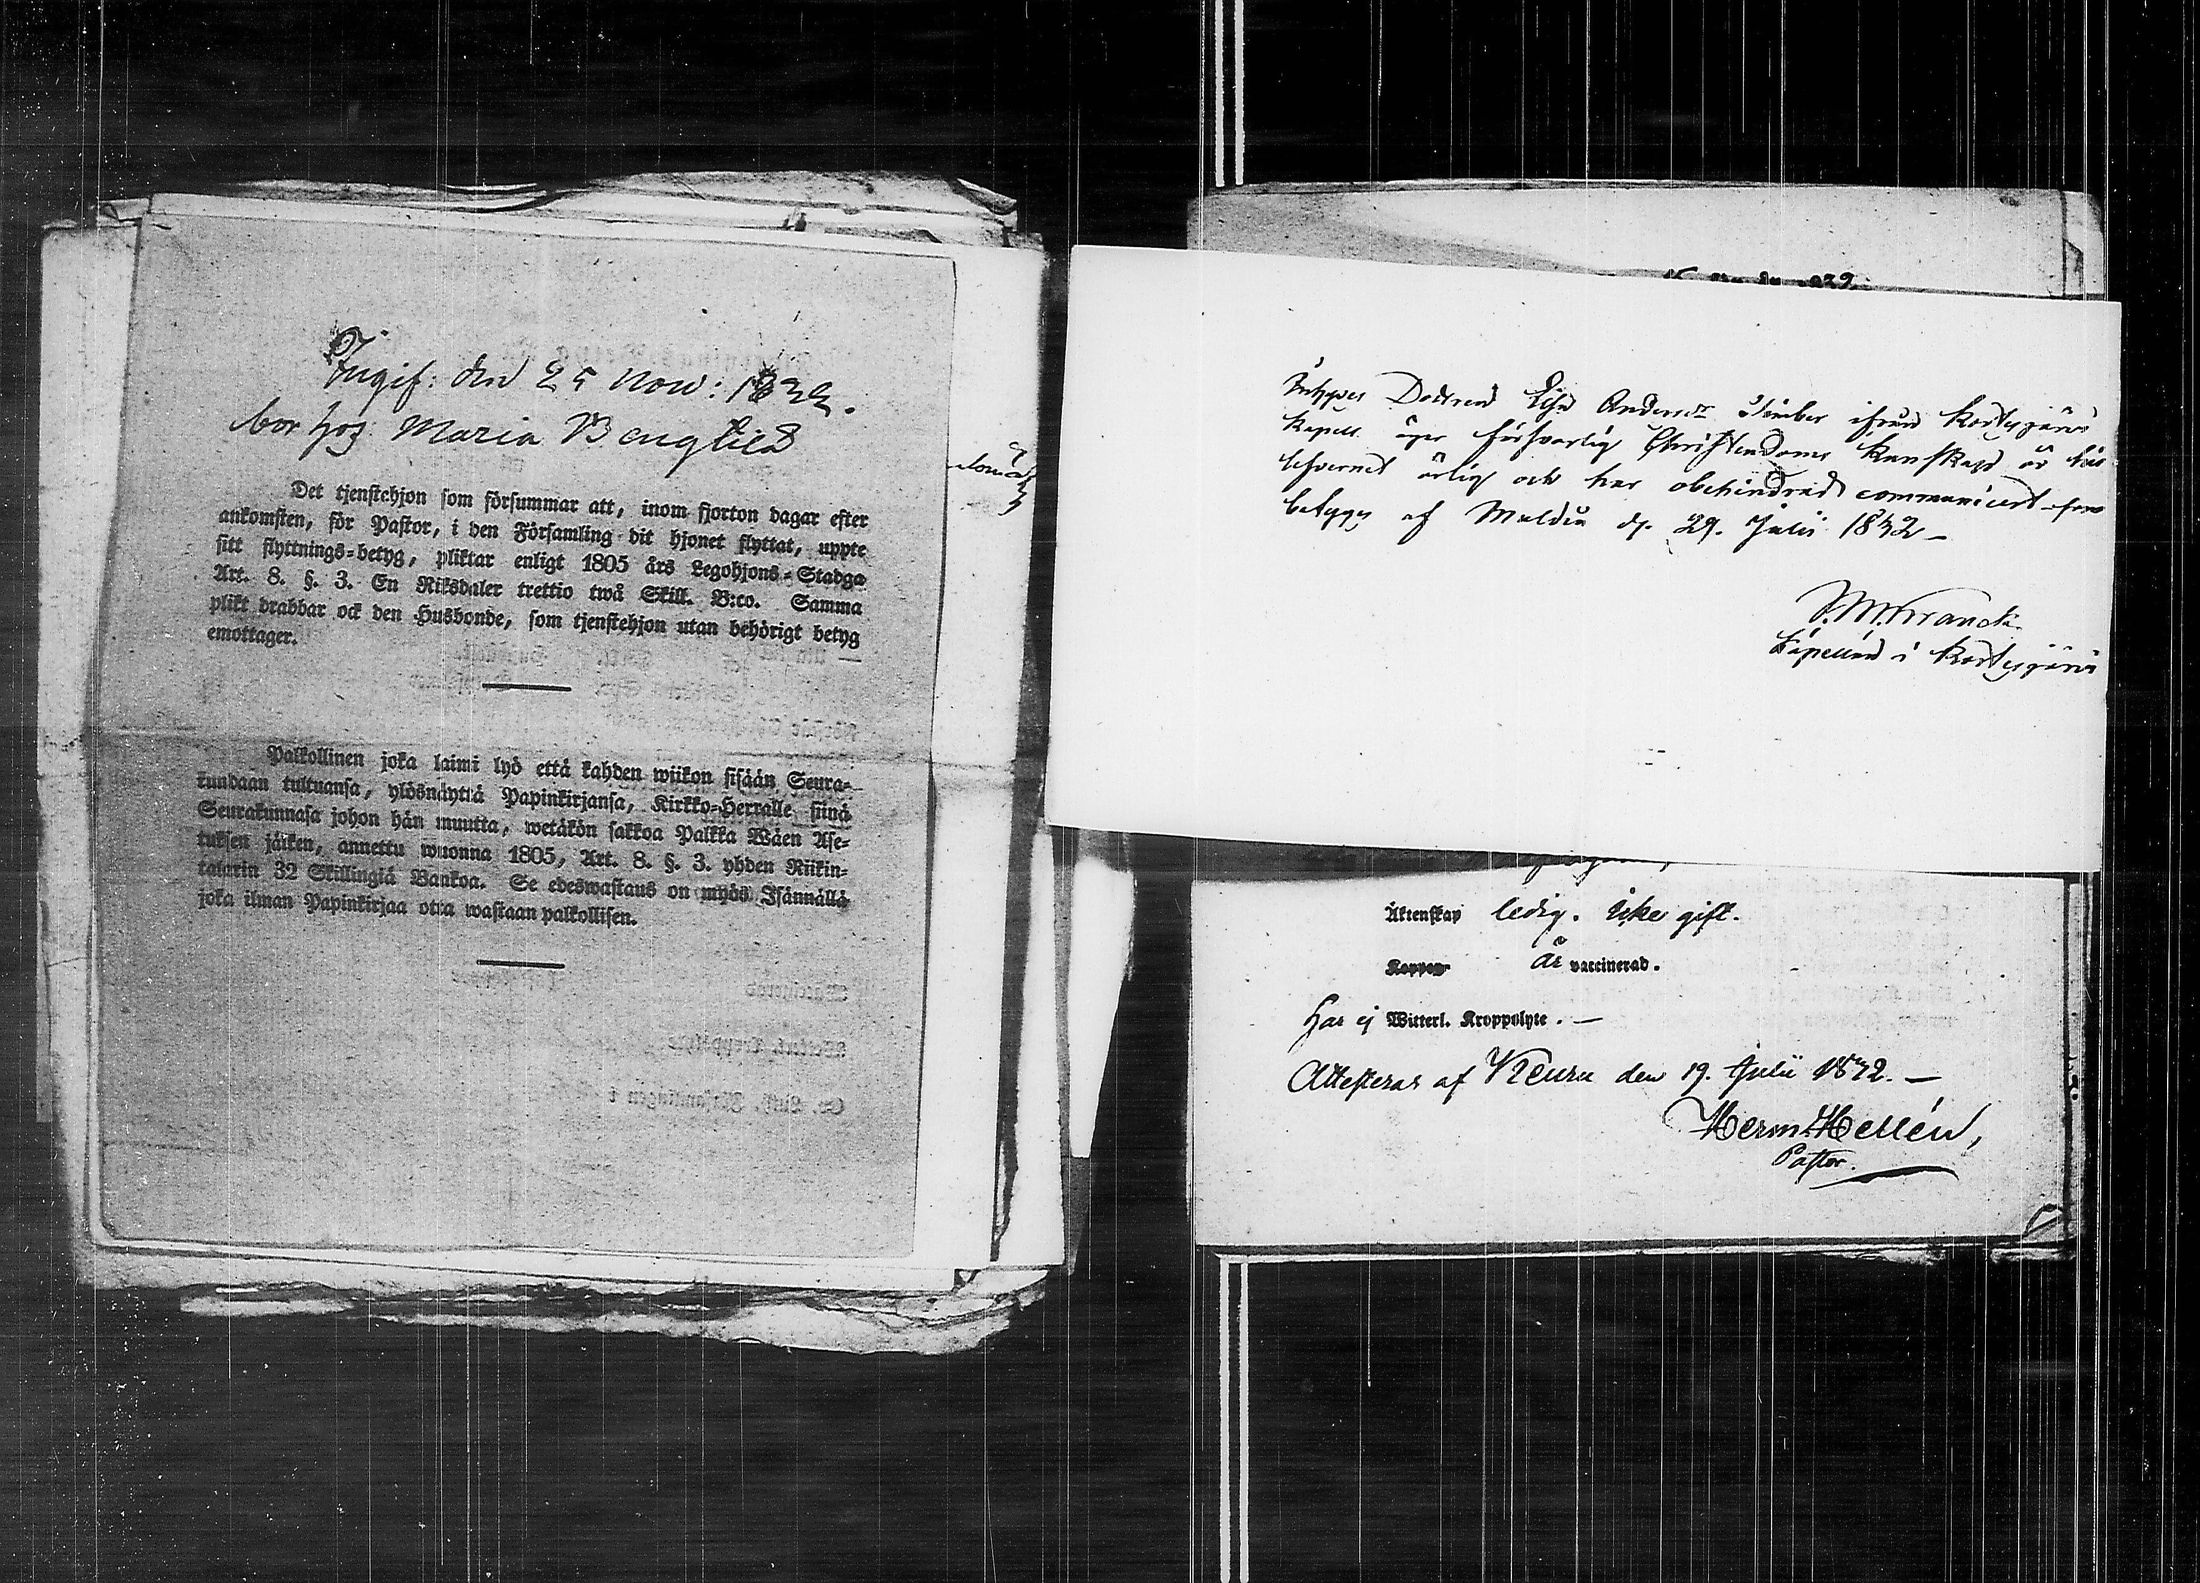 Ingif: den 25 Now: 1832.
bor hos Maria Bengtied
Det tjenstehjon som försummar att, inom fjorton dagar efter
ankomsten, för Pastor, i den Församling dit hjonet flyttat, uppte
sitt flyttnings-betyg, pliktar enligt 1805 års Legohjons-Stadga
Art. 8. §. 3. En Riksdaler trettio twå Skill. B:co. Samma
plikt drabbar ock den Husbonde, som tjenstehjon utan behörigt betyg
emottager.
Palkollinen joka laimi lyö että kahden wiikon sisään Seura-
kundaan tultuansa, ylösnäyttä Papinkirjansa, Kirkko-Herralle siinä
Seurakunnasa johon hän muutta, wetäkön sakkoa Palkka Wäen Ase-
tuksen jälken, annettu wuonna 1805, Art. 8. §. 3. yhden Riikin-
talarin 32 Skillingiä Bankoa. Se edeswastaus on myös Isännällä
joka ilman Papinkirjaa otta wastaan palkollisen.
Dottren Anders ifrån Kortesjärvi
Kapell äger försvarlig Christendoms kunskap är
lefvernet ärlig och har obehindrad communicerat
betygas af d. 29. Julii 1832 -
Kapellan i Kortesjärvi
Äktenskap ledig. Icke gift.
Koppor är vaccinerad.
Har ej Witterl. Kroppslyte. —
Attesteras af Keuru den 19. Julii 1832. —
Herm: Hellén,
Pastor.